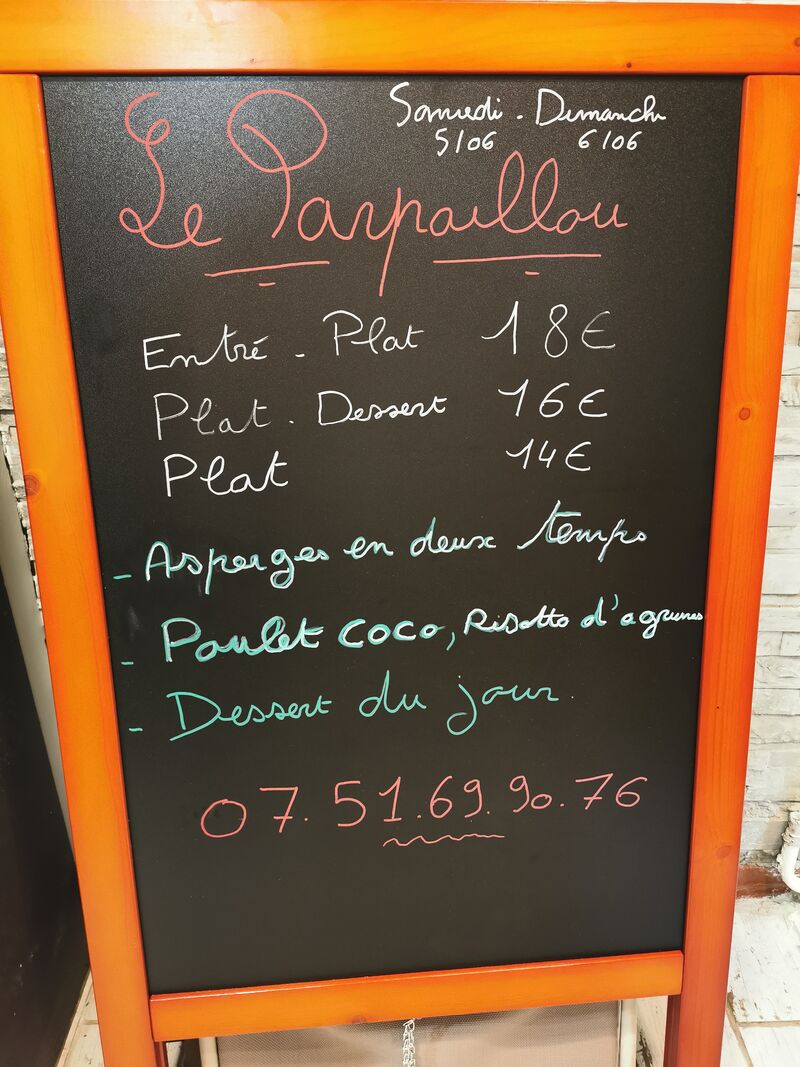 Samedi - Dimanche
5/06 6/06
Le Parpaillou
Entré - Plat 18€
Plat - Dessert 16€
Plat 14€
- Asperges en deux temps
- Poulet coco, Risotto d'agrumes
- Dessert du jour
07.51.69.90.76